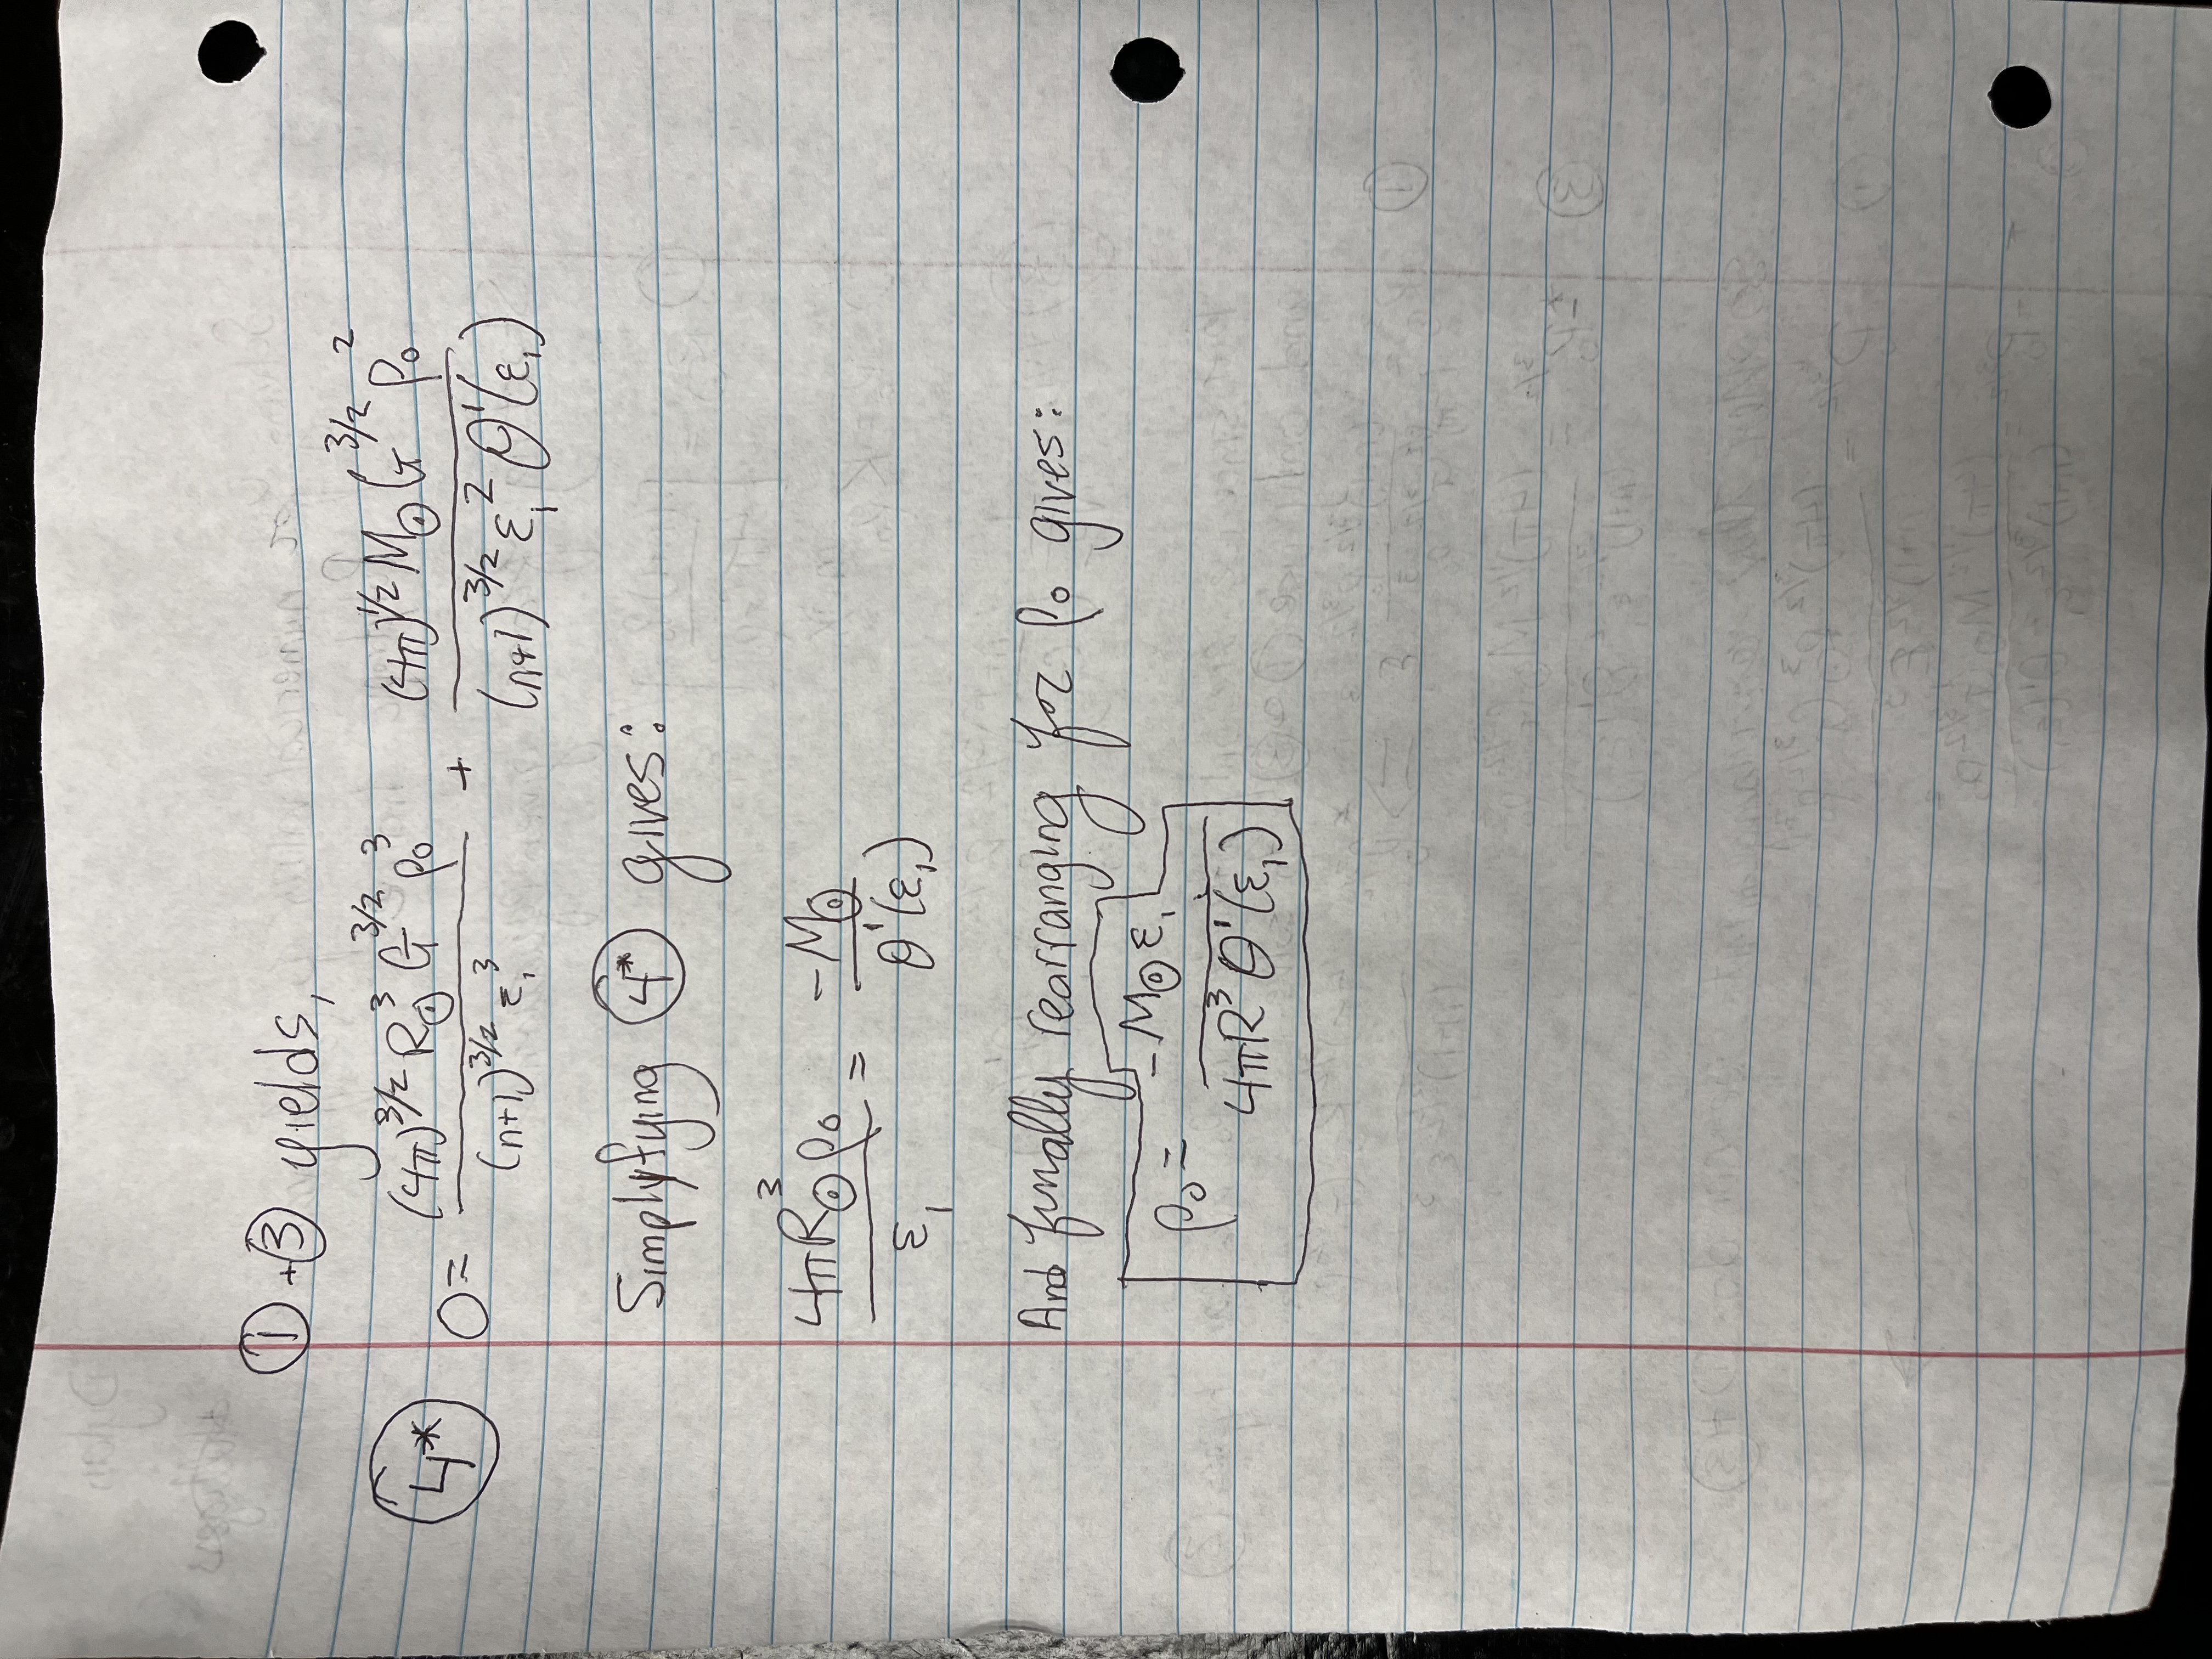 ① + ③ yields,
④* 0 = (4π)^3/2 R☉^3 G^3/2 ρ₀^3 / (n+1)^3/2 ε₁^3 + (4π)^1/2 M☉ G^3/2 ρ₀^2 / (n+1)^3/2 ε₁^2 θ'(ε₁)
Simplyfying ④* gives:
4πR☉^3 ρ₀ / ε₁ = -M☉ / θ'(ε₁)
And finally rearranging for ρ₀ gives:
ρ₀ = -M☉ ε₁ / 4πR^3 θ'(ε₁)